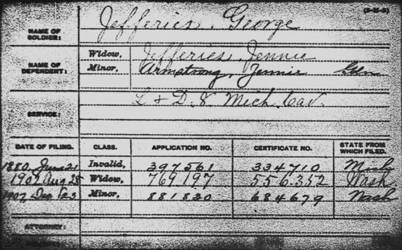 NAME OF SOLDIER: Jefferies, George
NAME OF DEPENDENT: Widow, Jefferies, Jennie
Minor, Armstrong, Jennie Gdn
SERVICE: L + D. 8 Mich. Cav.
DATE OF FILING. CLASS. APPLICATION NO. CERTIFICATE NO. STATE FROM WHICH FILED.
1880 June 21 Invalid, 397561 334710 Mich
1902 Aug 28 Widow, 769197 556352 Wash
1907 Dec 23 Minor, 881830 684679 Wash
ATTORNEY: